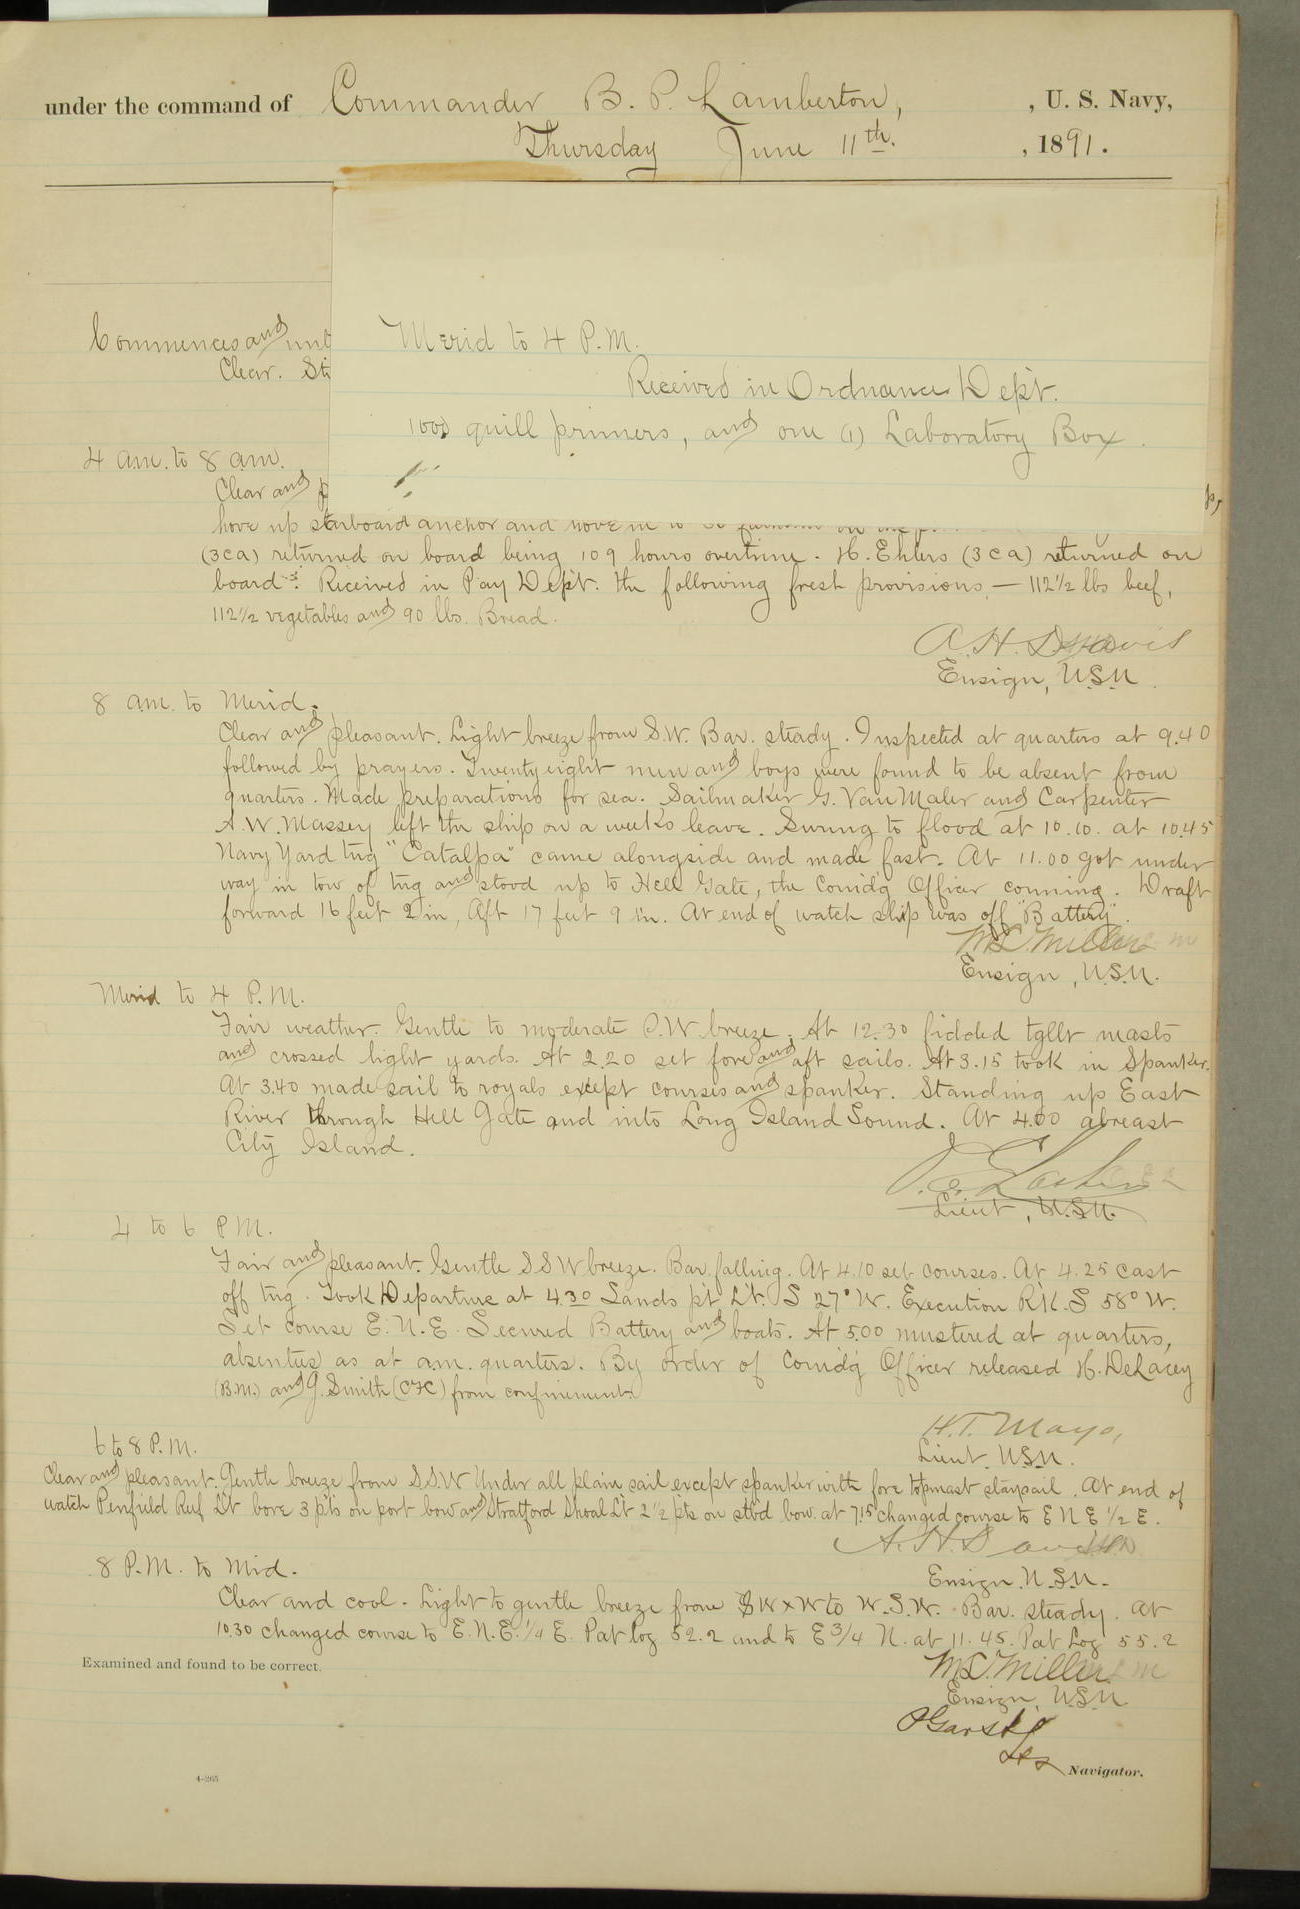 under the command of Commander B. P. Lamberton, , U. S. Navy,
Thursday June 11th. , 1891.
Commences and
Clear.
Merid to 4 P.M.
Received in Ordnance Dept.
1000 quill primers, and one (1) Laboratory Box.
4 a.m. to 8 a.m.
Clear and
hove up starboard anchor and hove in to
(3ca) returned on board being 109 hours overtime. H. Ehlers (3ca) returned on
board. Received in Pay Dept. the following fresh provisions, — 112 1/2 lbs beef,
112 1/2 vegetables and 90 lbs. Bread.
A. H. Davis
Ensign, U.S.N.
8 a.m. to Merid.
Clear and pleasant. Light breeze from S.W. Bar. steady. Inspected at quarters at 9.40
followed by prayers. Twenty eight men and boys were found to be absent from
quarters. Made preparations for sea. Sailmaker G. Van Maler and Carpenter
A. W. Massey left the ship on a weeks leave. Swung to flood at 10.10. at 10.45
Navy Yard tug "Catalpa" came alongside and made fast. At 11.00 got under
way in tow of tug and stood up to Hell Gate, the Comd'g Officer conning. Draft
forward 16 feet 2 in, Aft 17 feet 9 in. At end of watch ship was off "Battery".
Miller
Ensign, U.S.N.
Merid to 4 P.M.
Fair weather. Gentle to moderate S.W breeze. At 12.30 fidded tgllt masts
and crossed light yards. At 2.20 set fore and aft sails. At 3.15 took in Spanker.
At 3.40 made sail to royals except courses and spanker. Standing up East
River through Hell Gate and into Long Island Sound. At 4.00 abreast
City Island.
Lieut, U.S.N.
4 to 6 P.M.
Fair and pleasant. Gentle S S W breeze. Bar. falling. At 4.10 set courses. At 4.25 cast
off tug. Took Departure at 4.30 Sands pt Lt. S 27° W. Execution Rk. S 58° W.
Set course E. N. E. Secured Battery and boats. At 5.00 mustered at quarters,
absentees as at a.m. quarters. By order of Comd'g Officer released H. DeLacey
(B.M.) and J. Smith (CFC) from confinement.
H. T. Mayo,
Lieut. U.S.N.
6 to 8 P.M.
Clear and pleasant. Gentle breeze from S.S.W Under all plain sail except spanker with fore topmast staysail. At end of
watch Penfield Reef Lt bore 3 pts on port bow and Stratford Shoal Lt 2 1/2 pts on stbd bow. at 7.15 changed course to E N E 1/2 E.
A. H. Davis
Ensign U.S.N.
8 P.M. to Mid.
Clear and cool. Light to gentle breeze from SW x W to W.S.W. Bar. steady. At
10.30 changed course to E.N.E. 1/4 E. Pat log 52.2 and to E 3/4 N. at 11.45. Pat Log 55.2
Miller
Ensign, U.S.N
Examined and found to be correct.
P Garst
Navigator.
4-265